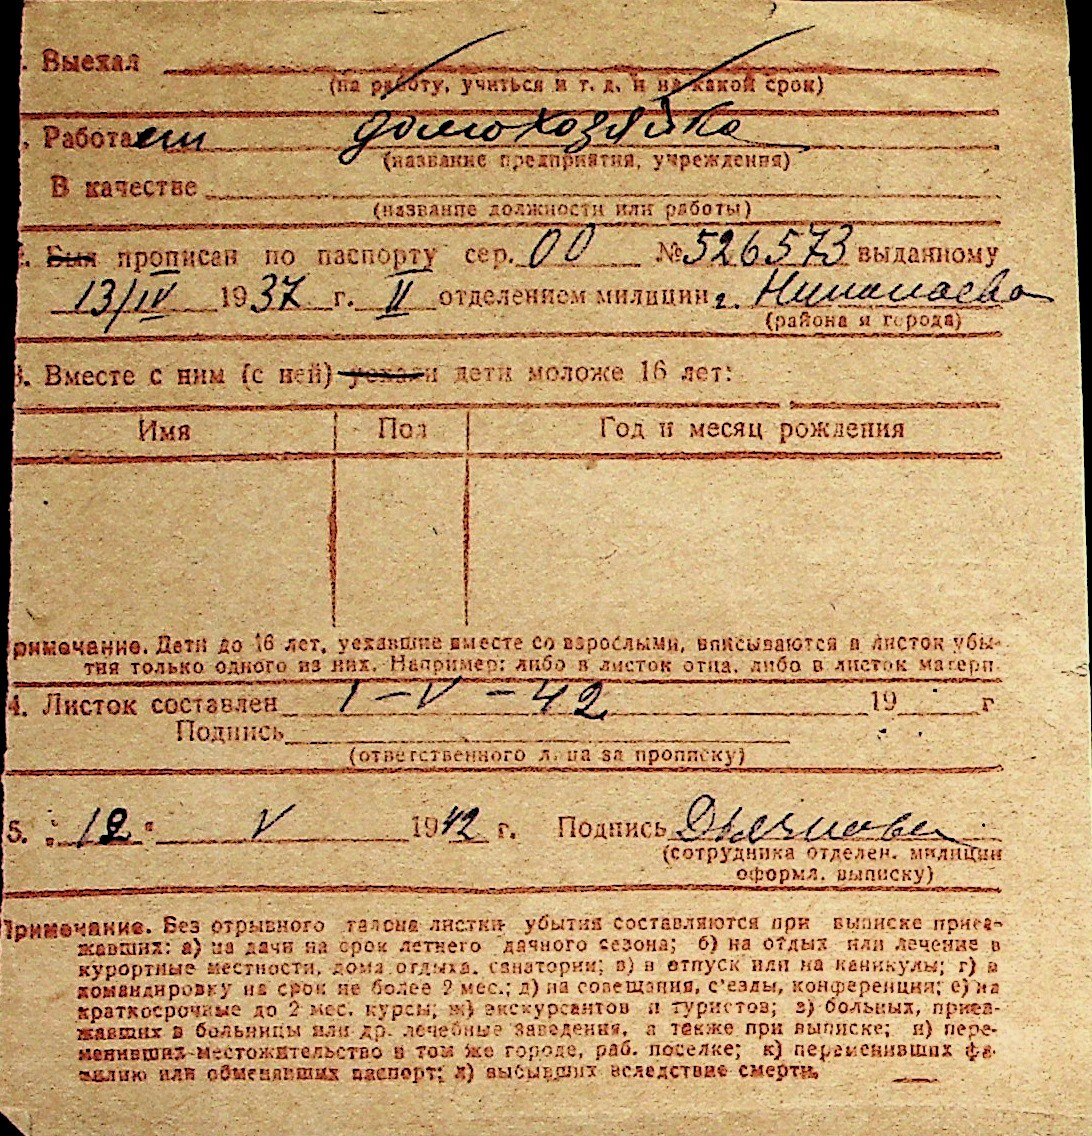 . Выехал
(на работу, учиться и т. д. и на какой срок)
. Работает домохозяйка
(название предприятия, учреждения)
В качестве
(название должности или работы)
. Был прописан по паспорту сер. 00 № 526573 выданному
13/IV 1937 г. II отделением милиции г. Николаева
(района и города)
3. Вместе с ним (с ней) уехали дети моложе 16 лет:
Имя Пол Год и месяц рождения
римечание. Дети до 16 лет, уехавшие вместе со взрослыми, вписываются в листок убы-
тия только одного из них. Например: либо в листок отца, либо в листок матери.
4. Листок составлен 1-V-42 19 г
Подпись
(ответственного лица за прописку)
5. " 12 " V 1942 г. Подпись
(сотрудника отделен. милиции
оформл. выписку)
Примечание. Без отрывного талона листки убытия составляются при выписке приез-
жавших: а) на дачи на срок летнего дачного сезона; б) на отдых или лечение в
курортные местности, дома отдыха, санатории; в) в отпуск или на каникулы; г) в
командировку на срок не более 2 мес.; д) на совещания, с'езды, конференции; е) на
краткосрочные до 2 мес. курсы; ж) экскурсантов и туристов; з) больных, приез-
жавших в больницы или др. лечебные заведения, а также при выписке; и) пере-
менивших местожительство в том же городе, раб. поселке; к) переменивших фа-
милию или обменявших паспорт; л) выбывших вследствие смерти.